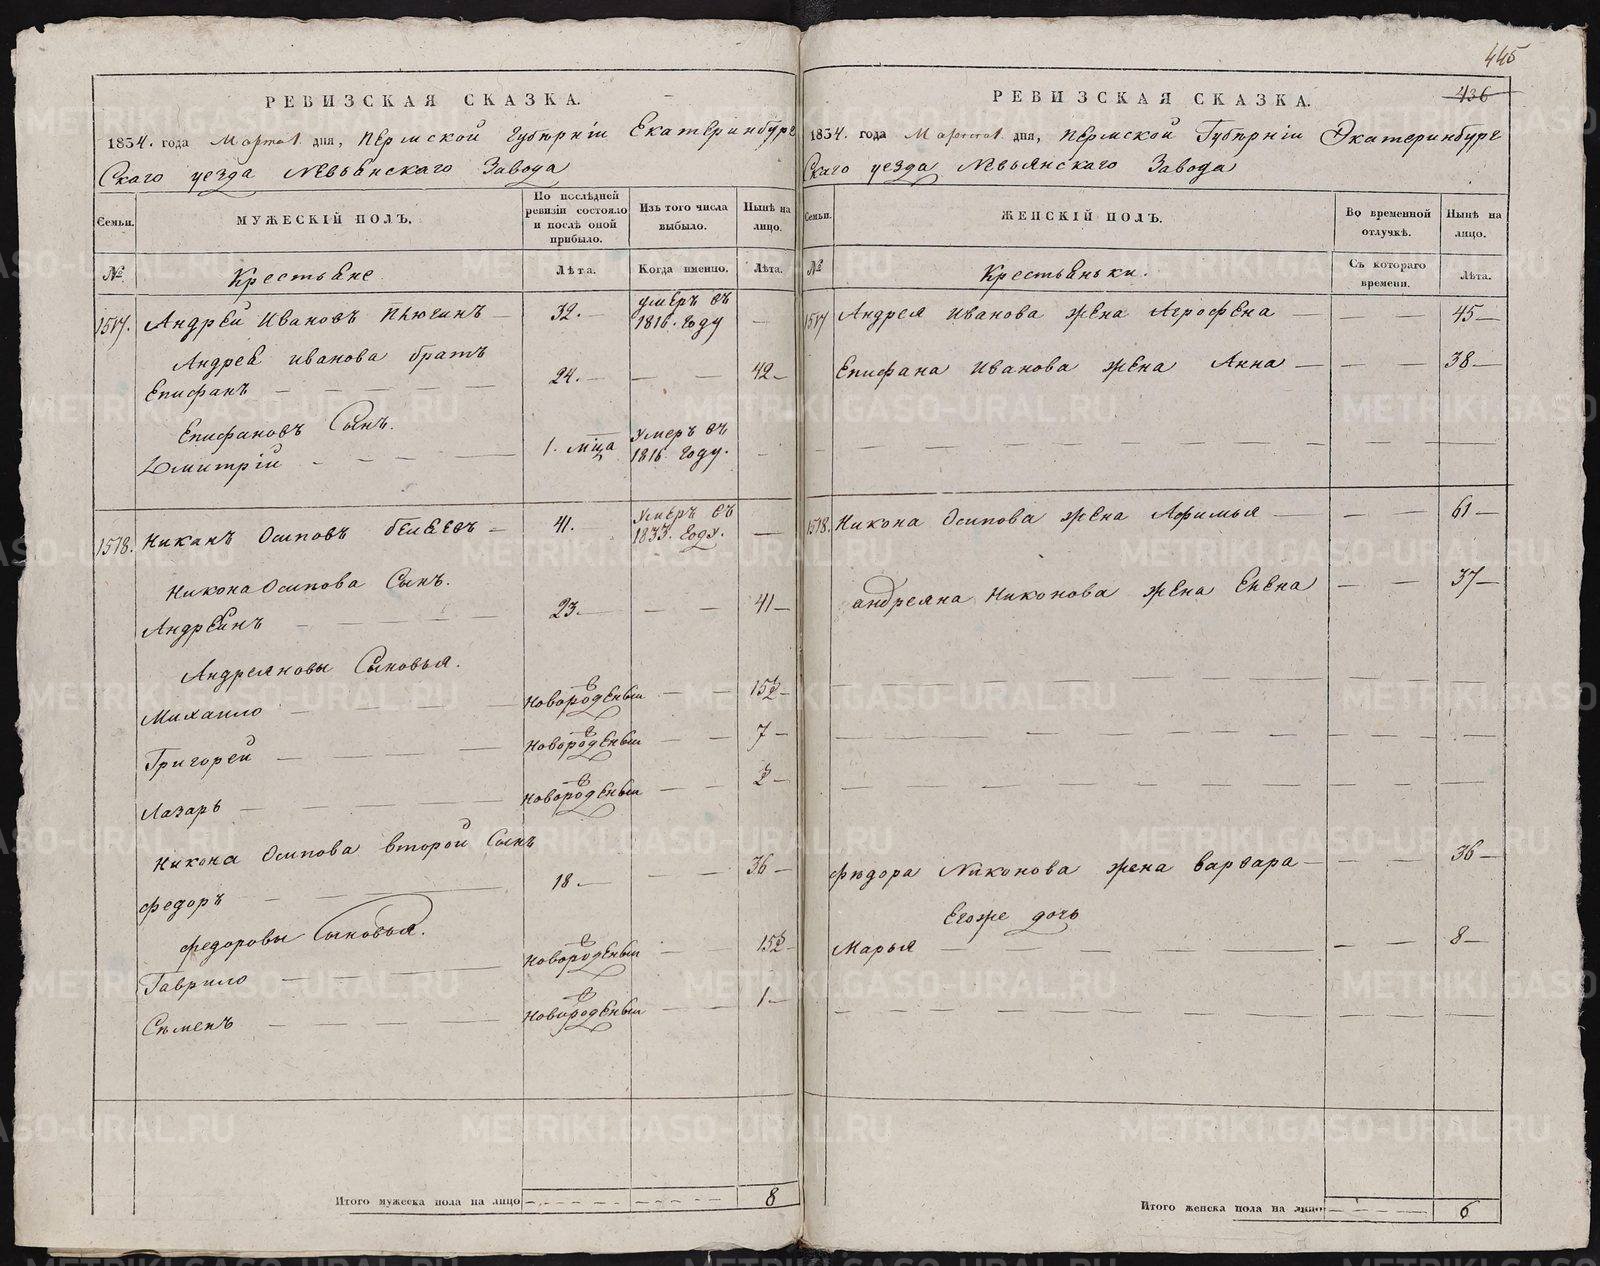 445
РЕВИЗСКАЯ СКАЗКА.
1834. года Марта 1. дня, Пермской Губѣрніи Екатеринбург
Скаго уезда Невьянскаго Завода
Семьи.
МУЖЕСКІЙ ПОЛЪ.
По послѣдней ревизіи состояло и послѣ оной прибыло.
Изъ того числа выбыло.
Нынѣ на лицо.
№
Крестьяне
Лѣта.
Когда именно.
Лѣта.
1517. Андрей Ивановъ — 32. — умеръ въ 1816. Году —
Андрея иванова братъ
Епифанъ — — — 24. — — — 42 —
Епифановъ Сынъ.
Дмитрій — — — 1. мца Умеръ въ 1816. Году. —
1518. Никанъ Осиповъ — 41. Умеръ въ 1833. Году. —
Никона Осипова Сынъ.
Андреянъ — — — 23. — — — 41 —
Андреяновы Сыновья.
Михаило — — — новорожденый — — 15½ —
Григорей — — — новорожденый — — 7 —
Лазарь — — — новорожденый — — ½ —
Никона Осипова второй Сынъ
федоръ — — — 18. — — — 36 —
федоровы Сыновья.
Гаврило — — — новорожденый — — 15½ —
Семенъ — — — новорожденый — — 1 —
Итого мужеска пола на лицо — — — 8
РЕВИЗСКАЯ СКАЗКА.
436
1834. года Марта 1. дня, Пермской Губѣрніи Екатеринбург
Скаго уезда Невьянскаго Завода
Семьи.
ЖЕНСКІЙ ПОЛЪ.
Во временной отлучкѣ.
Нынѣ на лицо.
№
Крестьяньки.
Съ котораго времени.
Лѣта.
1517 Андрея Иванова жена Агрофена — — — 45 —
Епифана Иванова жена Анна — — — 38 —
1518. Никона Осипова жена Афимья — — — 61 —
андреяна Никонова жена Елена — — 37 —
Федора Никонова жена варвара — — — 36 —
Егоже дочь
Марья — — — 8 —
Итого женска пола на лицо — — — 6
METRIKI.GASO-URAL.RU